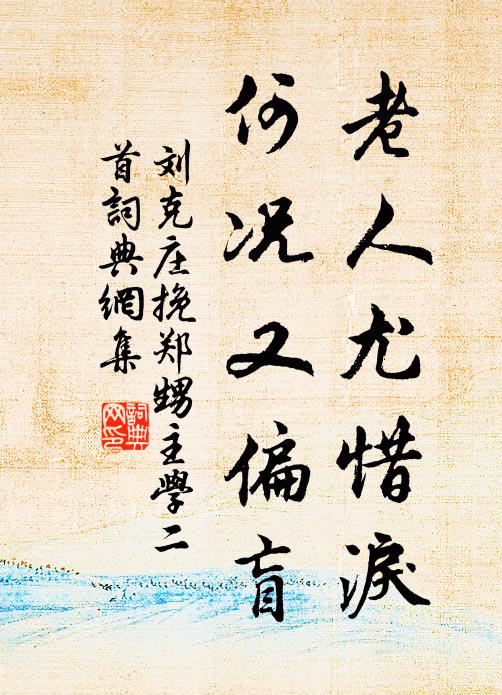 老人尤惜淚
何況又偏盲
刘克庄挽郑甥主學二
首詞典網集
詞典
网印